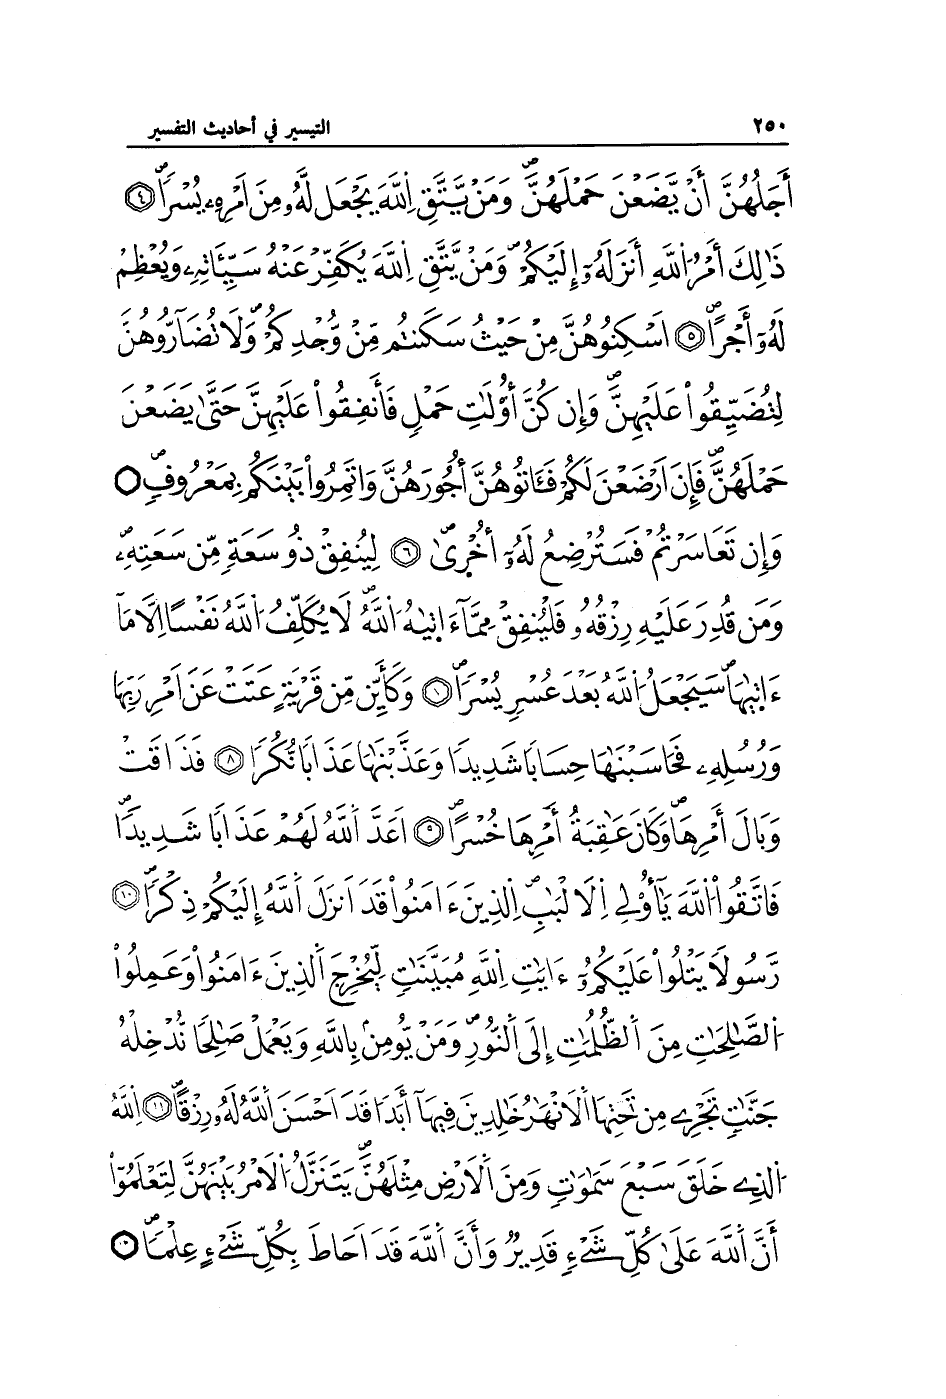 ٢٥٠ التيسير في أحاديث التفسير
أَجَلُهُنَّ أَنْ يَّضَعْنَ حَمْلَهُنَّ وَمَنْ يَّتَّقِ اِللَّهَ يَجْعَل لَّهُۥ مِنَ اَمْرِهِۦ يُسْراً ④
ذَٰلِكَ أَمْرُ اُللَّهِ أَنزَلَهُۥٓ إِلَيْكُمْ وَمَنْ يَّتَّقِ اِللَّهَ يُكَفِّرْ عَنْهُ سَيِّـَٔاتِهِۦ وَيُعْظِمْ
لَهُۥٓ أَجْراً ⑤ اَسْكِنُوهُنَّ مِنْ حَيْثُ سَكَنتُم مِّنْ وُّجْدِكُمْ وَلَا تُضَآرُّوهُنَّ
لِتُضَيِّقُواْ عَلَيْهِنَّ وَإِن كُنَّ أُوْلَٰتِ حَمْلٍ فَأَنفِقُواْ عَلَيْهِنَّ حَتَّىٰ يَضَعْنَ
حَمْلَهُنَّ فَإِنَ اَرْضَعْنَ لَكُمْ فَـَٔاتُوهُنَّ أُجُورَهُنَّ وَاتَمِرُواْ بَيْنَكُم بِمَعْرُوفٍ
وَإِن تَعَاسَرْتُمْ فَسَتُرْضِعُ لَهُۥٓ أُخْرَىٰ ⑥ لِيُنفِقْ ذُو سَعَةٍ مِّن سَعَتِهِۦ
وَمَن قُدِرَ عَلَيْهِ رِزْقُهُۥ فَلْيُنفِقْ مِمَّآ ءَاتَىٰهُ اُللَّهُ لَا يُكَلِّفُ اُللَّهُ نَفْساً اِلَّا مَآ
ءَاتَىٰهَا سَيَجْعَلُ اُللَّهُ بَعْدَ عُسْرٍ يُسْراً وَكَأَيِّن مِّن قَرْيَةٍ عَتَتْ عَنَ اَمْرِ رَبِّهَا
وَرُسُلِهِۦ فَحَاسَبْنَٰهَا حِسَاباً شَدِيداً وَعَذَّبْنَٰهَا عَذَاباً نُّكُراً ⑧ فَذَاقَتْ
وَبَالَ أَمْرِهَا وَكَانَ عَٰقِبَةُ أَمْرِهَا خُسْراً ⑨ اَعَدَّ اَللَّهُ لَهُمْ عَذَاباً شَدِيداً
فَاتَّقُواْ اُللَّهَ يَٰٓأُوْلِي اِلَالْبَٰبِ اِلذِينَ ءَامَنُواْ قَدَ اَنزَلَ اَللَّهُ إِلَيْكُمْ ذِكْراً ⑩
رَّسُولاً يَتْلُواْ عَلَيْكُمُۥٓ ءَايَٰتِ اِللَّهِ مُبَيَّنَٰتٍ لِّيُخْرِجَ اَلذِينَ ءَامَنُواْ وَعَمِلُواْ
اُلصَّٰلِحَٰتِ مِنَ اَلظُّلُمَٰتِ إِلَى اَلنُّورِ وَمَنْ يُّومِنۢ بِاللَّهِ وَيَعْمَلْ صَٰلِحاً نُّدْخِلْهُ
جَنَّٰتٍ تَجْرِے مِن تَحْتِهَا اَلَانْهَٰرُ خَٰلِدِينَ فِيهَآ أَبَداً قَدَ اَحْسَنَ اَللَّهُ لَهُۥ رِزْقاً ⑪ اِللَّهُ
اُلذِے خَلَقَ سَبْعَ سَمَٰوَٰتٍ وَمِنَ اَلَارْضِ مِثْلَهُنَّ يَتَنَزَّلُ اُلَامْرُ بَيْنَهُنَّ لِتَعْلَمُوٓاْ
أَنَّ اَللَّهَ عَلَىٰ كُلِّ شَےْءٍ قَدِيرٌ وَأَنَّ اَللَّهَ قَدَ اَحَاطَ بِكُلِّ شَےْءٍ عِلْماً